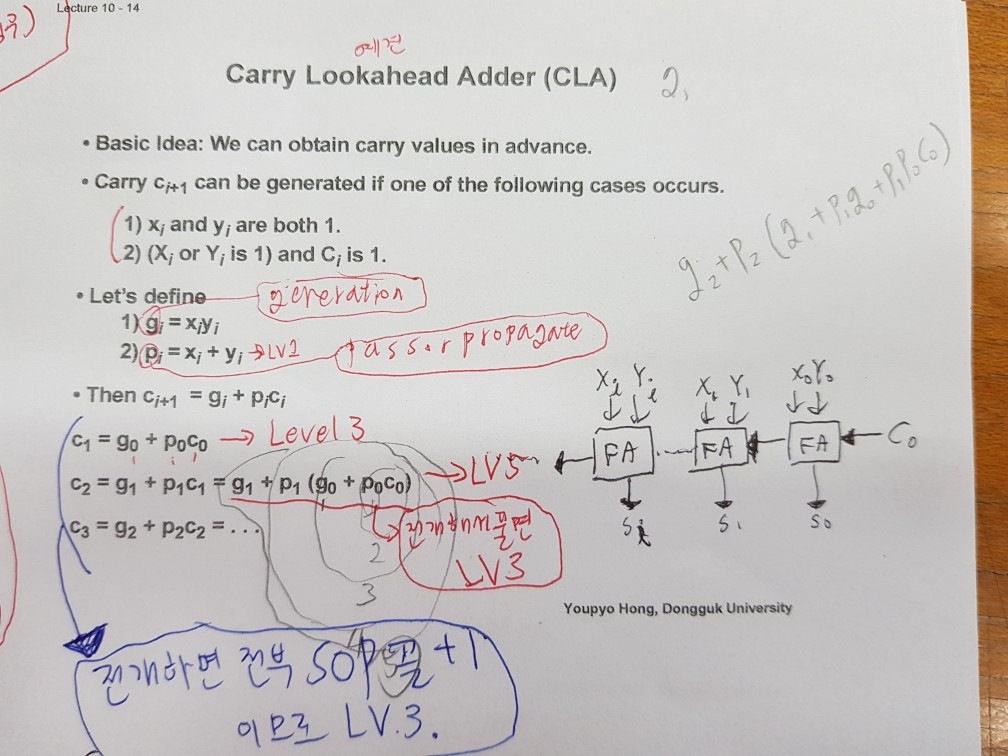 Lecture 10 - 14
예견
Carry Lookahead Adder (CLA)
g₁
• Basic Idea: We can obtain carry values in advance.
• Carry cᵢ₊₁ can be generated if one of the following cases occurs.
1) xᵢ and yᵢ are both 1.
2) (Xᵢ or Yᵢ is 1) and Cᵢ is 1.
g₂+P₂(g₁+P₁g₀+P₁P₀C₀)
• Let's define
generation
1) gᵢ = xᵢyᵢ
2) pᵢ = xᵢ + yᵢ → LV1
pass or propagate
• Then cᵢ₊₁ = gᵢ + pᵢcᵢ
c₁ = g₀ + p₀c₀ → Level 3
c₂ = g₁ + p₁c₁ = g₁ + p₁ (g₀ + p₀c₀) → LV5
c₃ = g₂ + p₂c₂ = . . .
전개해서 풀면
LV3
2
3
4
5
Xᵢ Yᵢ X₁ Y₁ X₀ Y₀
FA FA FA C₀
Sᵢ S₁ S₀
Youpyo Hong, Dongguk University
전개하면 전부 SOP폼 +1
이므로 LV.3.